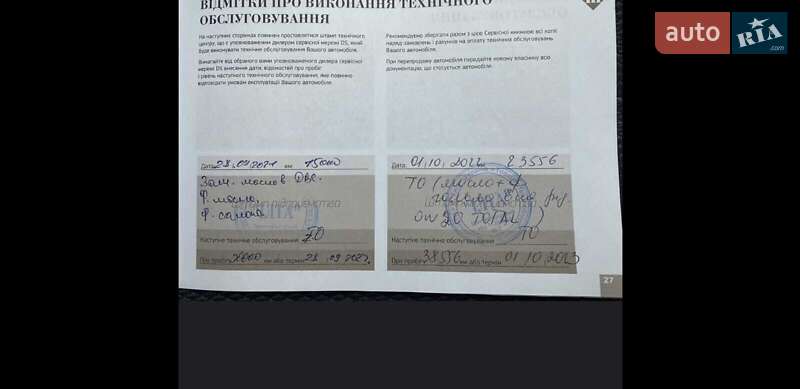 ВІДМІТКИ ПРО ВИКОНАННЯ ТЕХНІЧНОГО
ОБСЛУГОВУВАННЯ
На наступних сторінках повинен проставлятися штамп технічного
центру, що є уповноваженим дилером сервісної мережі DS, який
буде виконувати технічне обслуговування Вашого автомобіля.
Вимагайте від обраного вами уповноваженого дилера сервісної
мережі DS внесення дати, відомостей про пробіг
і рівень наступного технічного обслуговування, яке повинно
відповідати умовам експлуатації Вашого автомобіля.
Рекомендуємо зберігати разом з цією Сервісною книжкою всі копії
наряд-замовлень і рахунків на оплату технічних обслуговувань
Вашого автомобіля.
При перепродажу автомобіля передайте новому власнику всю
документацію, що стосується автомобіля.
Дата 28.09.2021 км 15000
Зам. масло в ДВС.
Ф. масло.
Ф. салона
Наступне технічне обслуговування ТО
При пробігу км або термін 28.09.2022
Дата 01.10.2022 км 23556
ТО (масло + ф
0W20 TOTAL)
ТО
Наступне технічне обслуговування
При пробігу 38556 км або термін 01.10.2023
27
auto RIA
.com